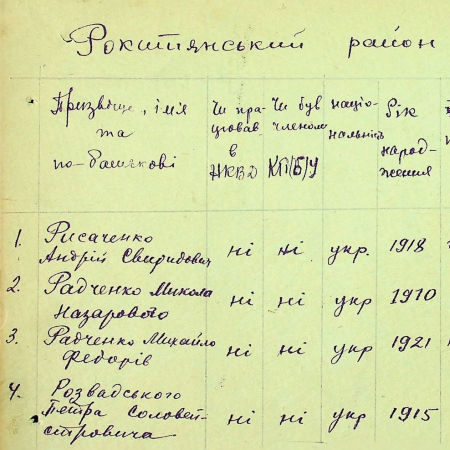 Рокитянський район
Призвище, ім'я
та
по-батькові
Чи пра-
цював
в
НКВД
Чи був
членом
КП/б/У
націо-
нальність
Рік
народ-
ження
1. Рисаченко
Андрій Свиридович ні ні укр. 1918
2. Радченко Микола
Назарового ні ні укр 1910
3. Радченко Михайло
Федорів ні ні укр 1921
4. Розвадського
Петра Соловей-
стровича ні ні укр 1915